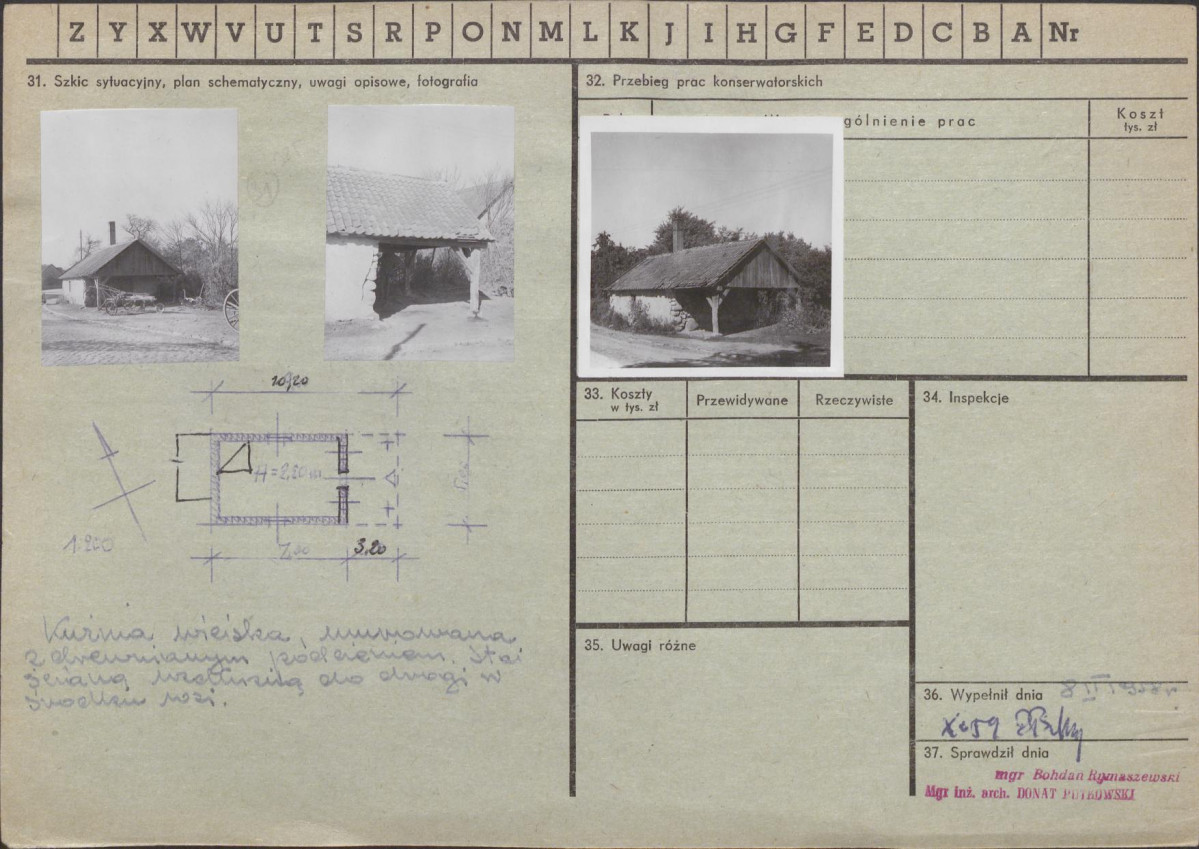 Z Y X W V U T S R P O N M L K J I H G F E D C B A Nr
31. Szkic sytuacyjny, plan schematyczny, uwagi opisowe, fotografia
10,20
H = 2,20 m
1:200
3,20
Kuźnia wiejska, murowana
z drewnianym podcieniem. Stoi
ścianą wzdłużną do drogi w
środku wsi.
32. Przebieg prac konserwatorskich
gólnienie prac
Koszt
tys. zł
33. Koszty
w tys. zł
Przewidywane
Rzeczywiste
34. Inspekcje
35. Uwagi różne
36. Wypełnił dnia 8 II 1958 r
X. 59
37. Sprawdził dnia
mgr Bohdan Rymaszewski
Mgr inż. arch. DONAT PIOTROWSKI